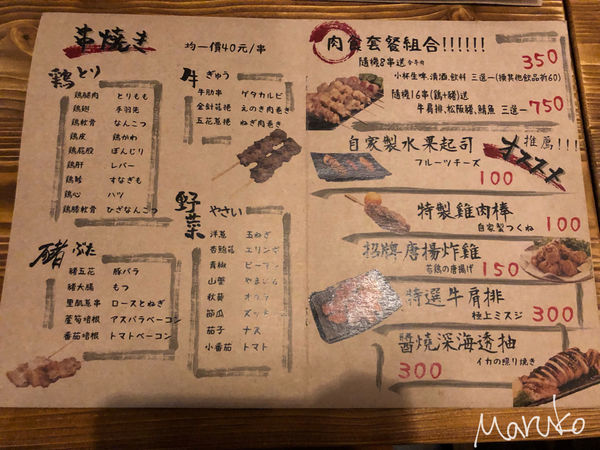 串焼き 均一價40元/串
鶏 とり
鶏腿肉 とりもも
鶏翅 手羽先
鶏軟骨 なんこつ
鶏皮 鶏かわ
鶏屁股 ぼんじり
鶏肝 レバー
鶏胗 すなぎも
鶏心 ハツ
鶏膝軟骨 ひざなんこつ
豬 ぶた
豬五花 豚バラ
豬大腸 もつ
里肌蔥串 ロースとねぎ
蘆筍培根 アスパラベーコン
番茄培根 トマトベーコン
牛 ぎゅう
牛肋串 ゲタカルビ
金針菇捲 えのき肉巻き
五花蔥捲 ねぎ肉巻き
野菜 やさい
洋蔥 玉ねぎ
杏鮑菇 エリンギ
青椒 ピーマン
山藥 やまいも
秋葵 オクラ
節瓜 ズッキ
茄子 ナス
小番茄 トマト
肉食套餐組合!!!!!!
隨機8串送 350
小杯生啤,清酒,飲料 三選一(換其他飲品折60)
隨機16串(鶏+豬)送
牛肩排,松阪豬,鯖魚 三選一 750
自家製水果起司 推薦!!!
フルーツチーズ オススメ
100
特製雞肉棒
自家製つくね 100
招牌唐揚炸雞
若鶏の唐揚げ 150
特選牛肩排
極上ミスジ 300
醬燒深海透抽
イカの照り焼き
300
Maruko